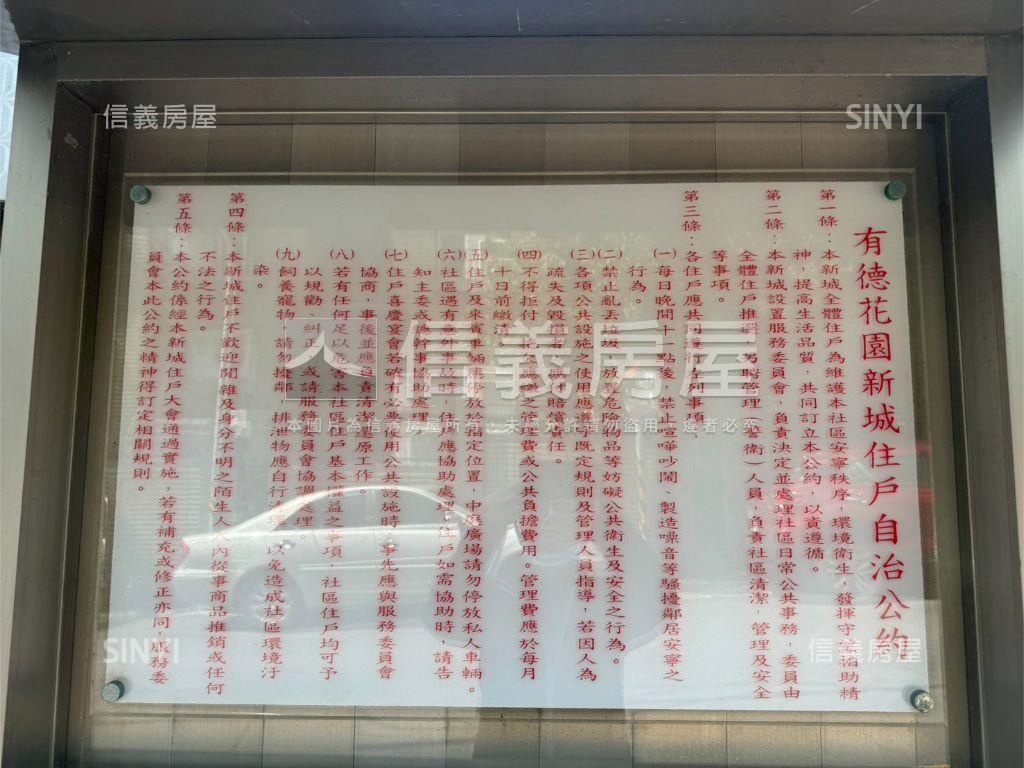 信義房屋
SINYI
有德花園新城住戶自治公約
第一條：本新城全體住戶為維護本社區安寧秩序，環境衛生，發揮守望相助精
神，提高生活品質，共同訂立本公約，以資遵循。
第二條：本新城設置服務委員會，負責決定並處理社區日常公共事務，委員由
全體住戶推選，另聘管理（警衛）人員，負責社區清潔，管理及安全
等事項。
第三條：各住戶應共同遵行左列事項：
㈠每日晚間十一點後，禁止喧嘩吵鬧、製造噪音等騷擾鄰居安寧之
行為。
㈡禁止亂丟垃圾，放置危險物品等妨礙公共衛生及安全之行為。
㈢各項公共設施之使用應遵守既定規則及管理人員指導，若因人為
疏失及毀損者，應付賠償責任。
㈣不得拒付、拖欠應繳之管理費或公共負擔費用。管理費應於每月
十日前繳清。
㈤住戶及來賓車輛應停放於指定位置，中庭廣場請勿停放私人車輛。
㈥社區遇有意外事故時，住戶應協助處理，住戶如需協助時，請告
知主委或總幹事協助處理。
㈦住戶喜慶宴會若確有必要使用公共設施時，事先應與服務委員會
協商，事後並應負責清潔還原工作。
㈧若有任何足以危害本社區住戶基本權益之事項，社區住戶均可予
以規勸、糾正或請服務委員會協調處理。
㈨飼養寵物，請勿擾鄰，排泄物應自行清理，以免造成社區環境汙
染。
第四條：本新城住戶不歡迎閒雜及身分不明之陌生人入內從事商品推銷或任何
不法之行為。
第五條：本公約係經本新城住戶大會通過實施，若有補充或修正亦同，服務委
員會本此公約之精神得訂定相關規則。
信義房屋
本圖片為信義房屋所有，未經允許請勿盜用，違者必究
SINYI
信義房屋